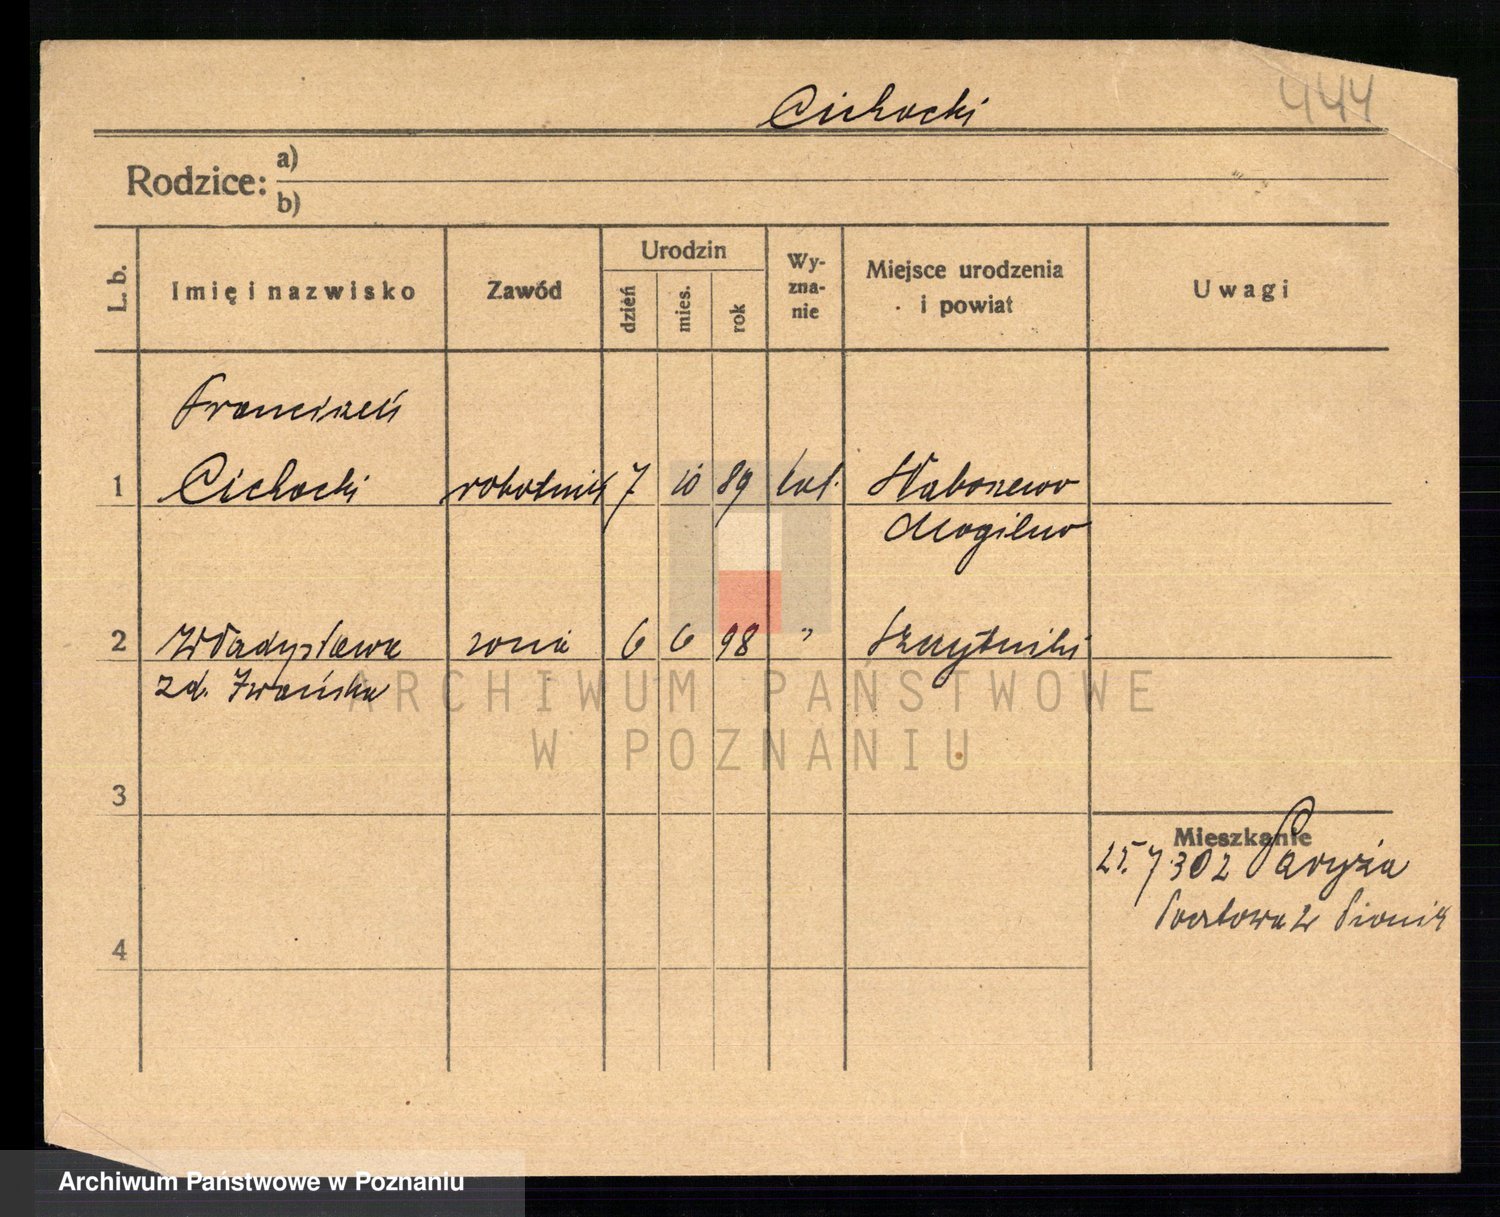 Cichocki
444
Rodzice: a)
b)
L. b.
Imię i nazwisko
Zawód
Urodzin
dzień
mies.
rok
Wy-
zna-
nie
Miejsce urodzenia
i powiat
Uwagi
Franciszek
1 Cichocki robotnik 7 10 89 kat.
Mogilno
2 Władysława żona 6 6 98 "
zd. Iwańska
3
Mieszkanie
25.7 30 z Paryża
Pocztowa
4
ARCHIWUM PAŃSTWOWE
W POZNANIU
Archiwum Państwowe w Poznaniu